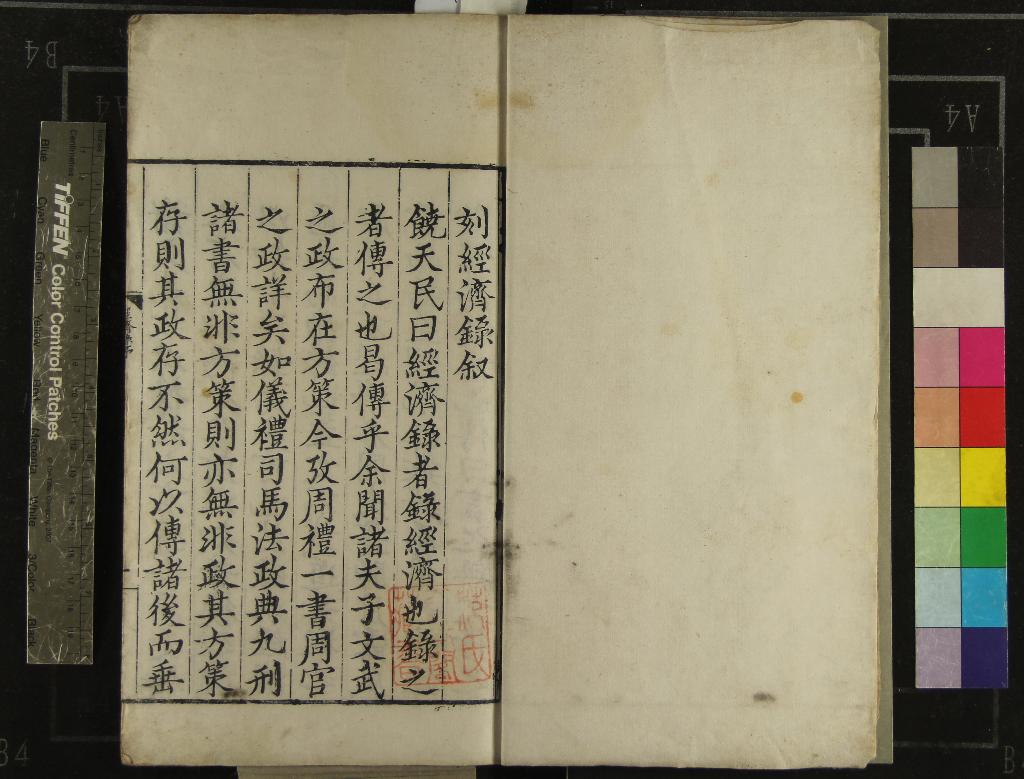 刻經濟錄叙
饒天民曰經濟錄者錄經濟也錄之
者傳之也曷傳乎余聞諸夫子文武
之政布在方策今攷周禮一書周官
之政詳矣如儀禮司馬法政典九刑
諸書無非方策則亦無非政其方策
存則其政存不然何以傳諸後而垂
TIFFEN Color Control Patches
Blue
Cyan
Green
Yellow
Red
Magenta
White
3/Color
Black
Centimetres
Inches
B4
A4
A4
B4
B